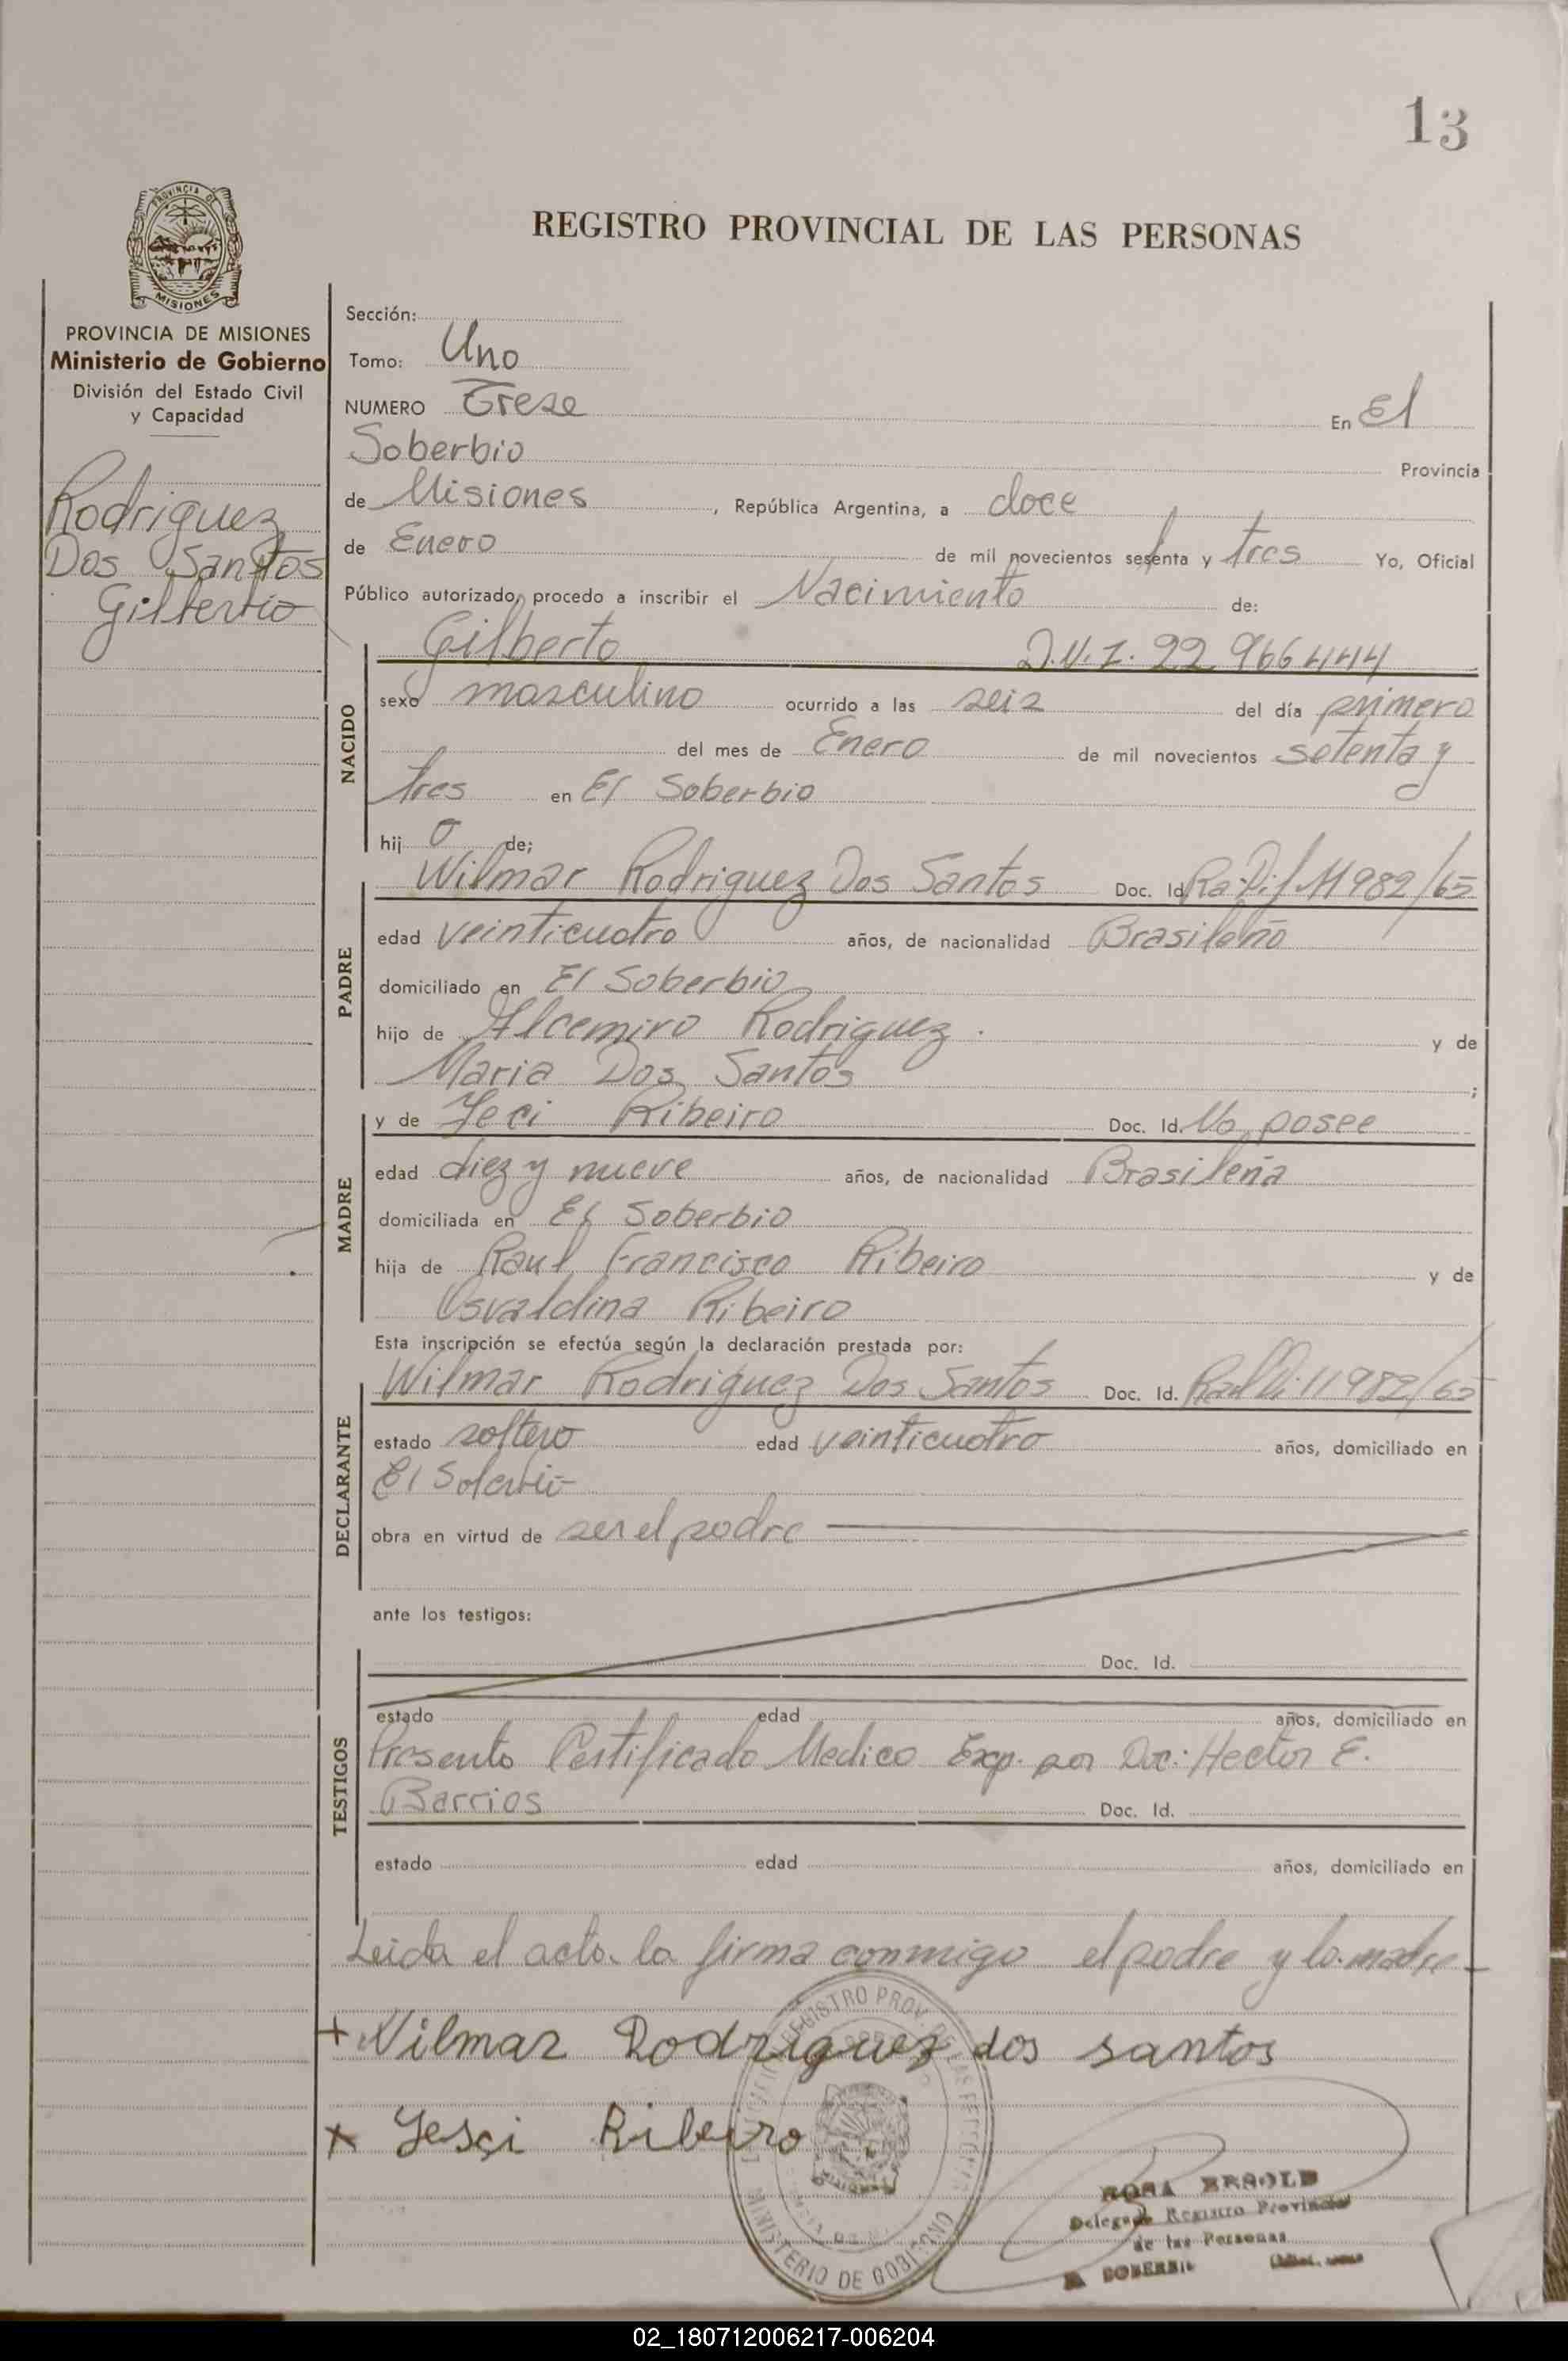 13
PROVINCIA DE
MISIONES
REGISTRO PROVINCIAL DE LAS PERSONAS
PROVINCIA DE MISIONES
Ministerio de Gobierno
División del Estado Civil
y Capacidad
Rodriguez
Dos Santos
Gilberto
Sección:
Tomo: Uno
NUMERO Trese En El
Soberbio Provincia
de Misiones, República Argentina, a doce
de Enero de mil novecientos sesenta y tres Yo, Oficial
Público autorizado, procedo a inscribir el Nacimiento de:
NACIDO
Gilberto D.N.I. 22 966 444
sexo masculino ocurrido a las seis del día primero
del mes de Enero de mil novecientos setenta y
tres en El Soberbio
hij o de;
PADRE
Wilmar Rodriguez Dos Santos Doc. Id. 11982/65
edad veinticuatro años, de nacionalidad Brasileño
domiciliado en El Soberbio
hijo de Alcemiro Rodriguez. y de
Maria Dos Santos ;
MADRE
y de Jeci Ribeiro Doc. Id. No posee
edad diez y nueve años, de nacionalidad Brasileña
domiciliada en El Soberbio
hija de Raul Francisco Ribeiro y de
Osvaldina Ribeiro
Esta inscripción se efectúa según la declaración prestada por:
DECLARANTE
Wilmar Rodriguez Dos Santos Doc. Id. 11982/65
estado soltero edad veinticuatro años, domiciliado en
El Soberbio
obra en virtud de ser el padre
ante los testigos:
TESTIGOS
Doc. Id.
estado edad años, domiciliado en
Presento Certificado Medico Exp. por Doc: Hector E.
Barrios Doc. Id.
estado edad años, domiciliado en
Leida el acta la firma conmigo el padre y la madre
+ Wilmar Rodriguez dos santos
x Jesçi Ribeiro
REGISTRO PROV. DE LAS PERSONAS
MINISTERIO DE GOBIERNO
ROSA
Delegado Registro Provincial
de las Personas
SOBERBIO
02_180712006217-006204